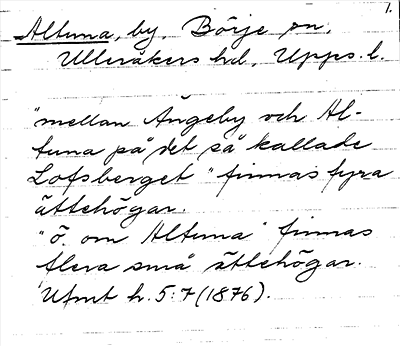 1.
Altuna, by, Börje sn,
Ulleråkers hd, Upps. l.
"mellan Ängeby och Al-
tuna på det så kallade
Lofsberget" finnas fyra
ättehögar.
"ö. om Altuna" finnas
flera små ättehögar.
Ufmt h. 5:7 (1876).